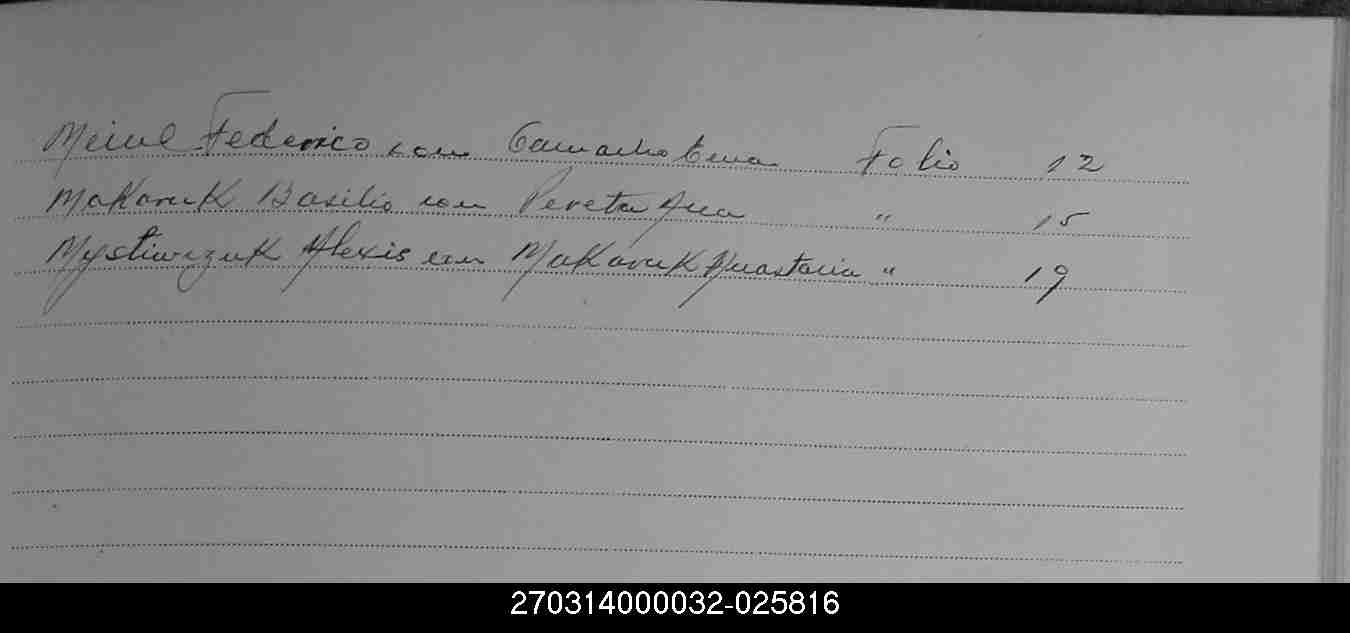 Meinl Federico con Camacho Ema Folio 12
Makaruk Basilio con Pereta Ana " 15
Mystiwczuk Alexis con Makaruk Anastacia " 19
270314000032-025816